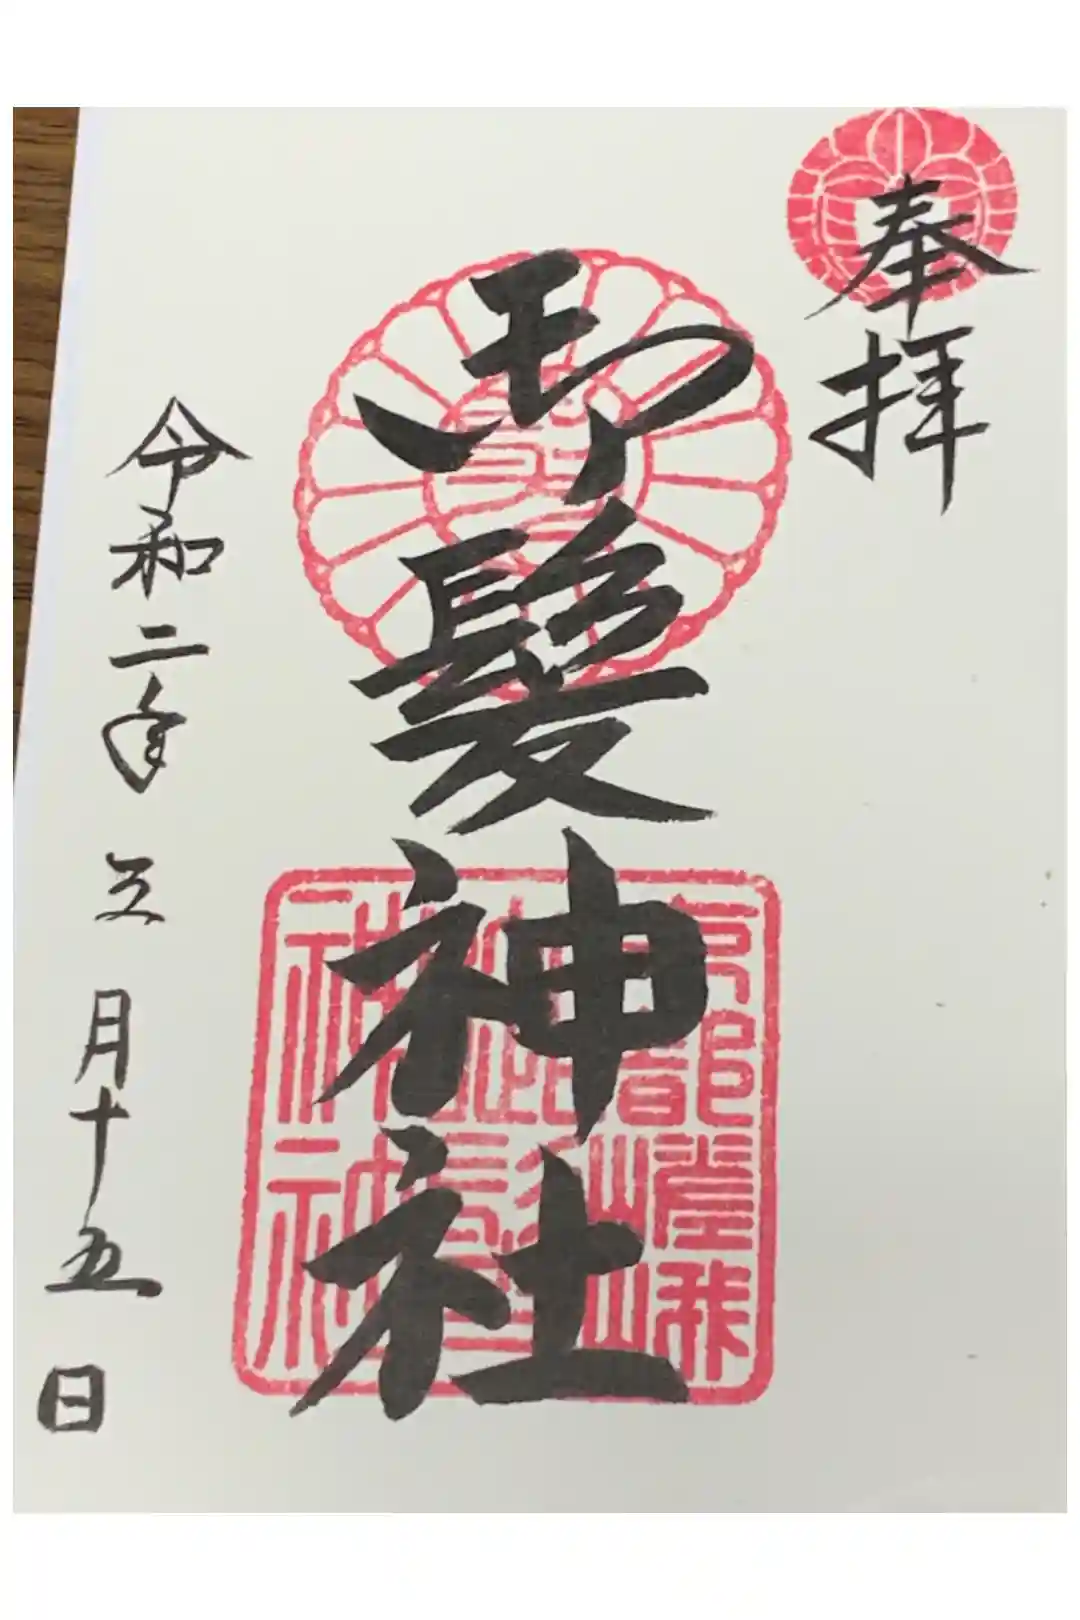 奉拝
御髪神社
京都嵯峨
御髪
神社
令和二年 三 月十五日